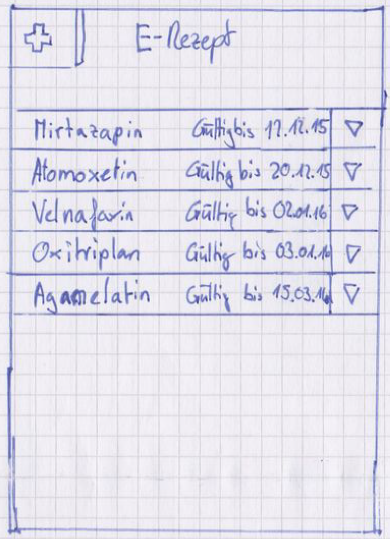 E-Rezept
Mirtazapin Gültig bis 12.12.15
Atomoxetin Gültig bis 20.12.15
Velnafaxin Gültig bis 02.01.16
Oxitriplan Gültig bis 03.01.16
Agamelatin Gültig bis 15.03.16